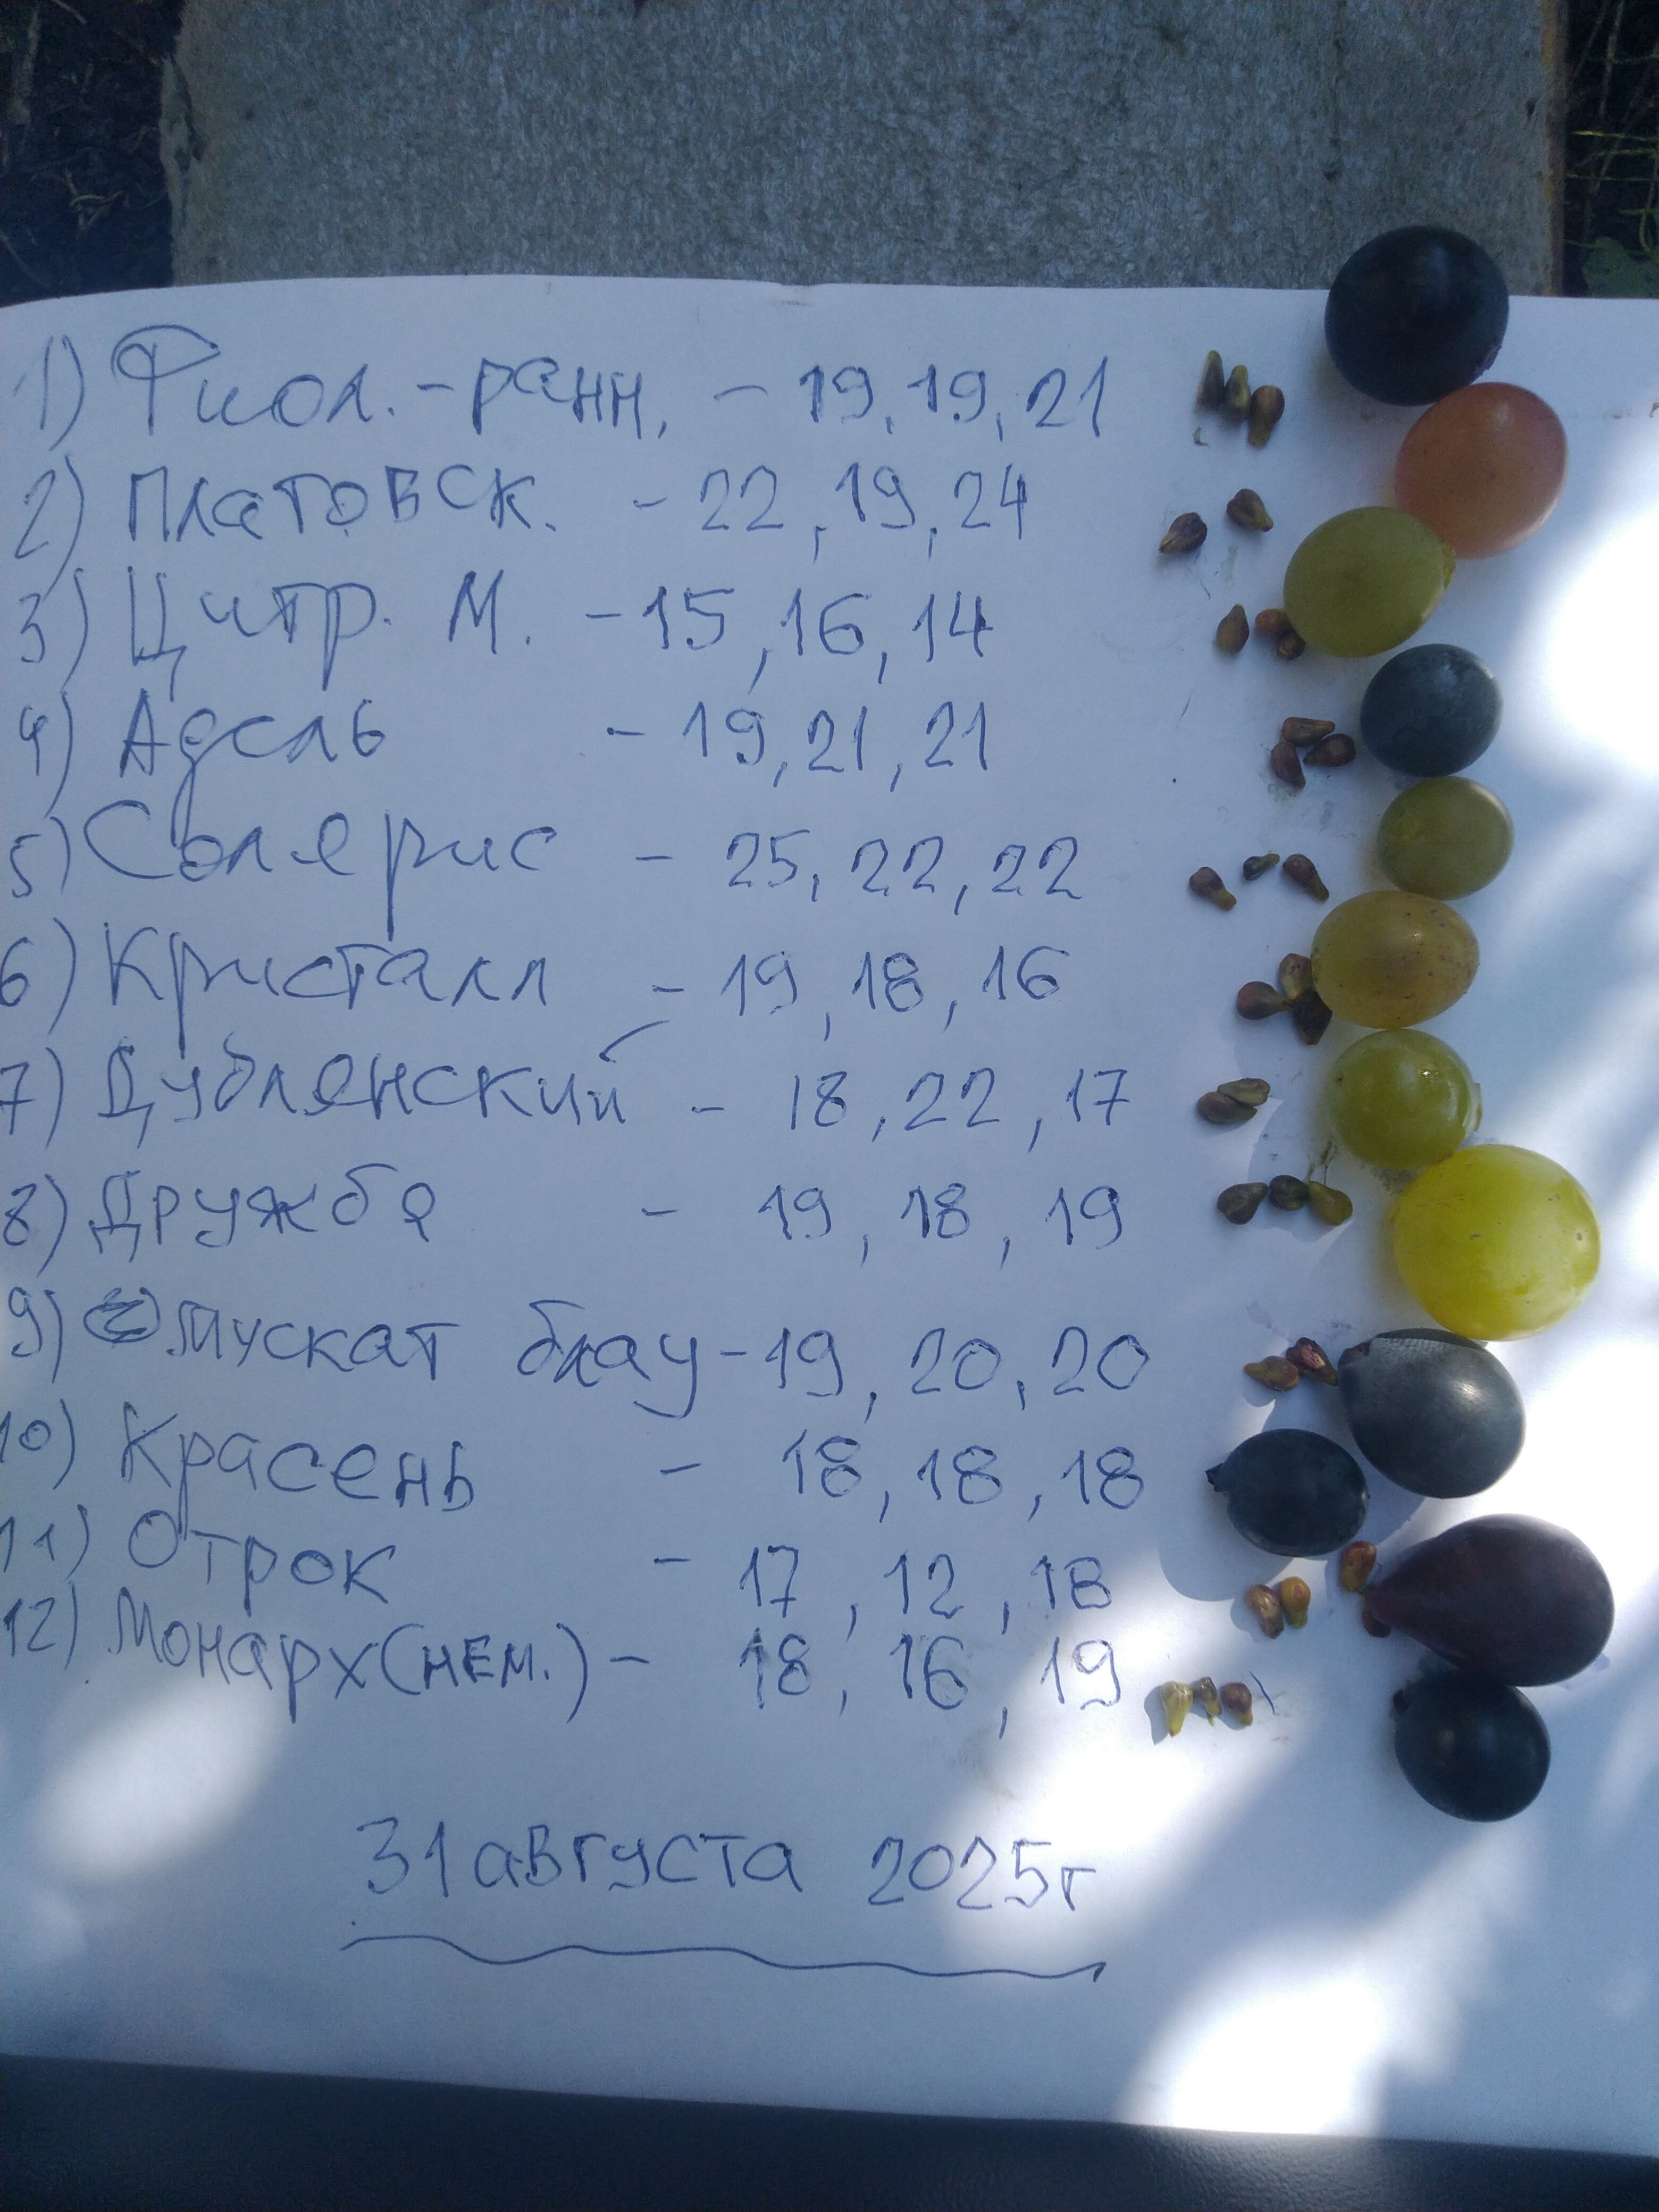 1) Фиол.-ранн. - 19, 19, 21
2) Платовск. - 22, 19, 24
3) Цитр. М. - 15, 16, 14
4) Адель - 19, 21, 21
5) Солярис - 25, 22, 22
6) Кристалл - 19, 18, 16
7) Дублянский - 18, 22, 17
8) Дружба - 19, 18, 19
9) Мускат блау - 19, 20, 20
10) Красень - 18, 18, 18
11) Отрок - 17, 12, 18
12) Монарх (нем.) - 18, 16, 19
31 августа 2025г